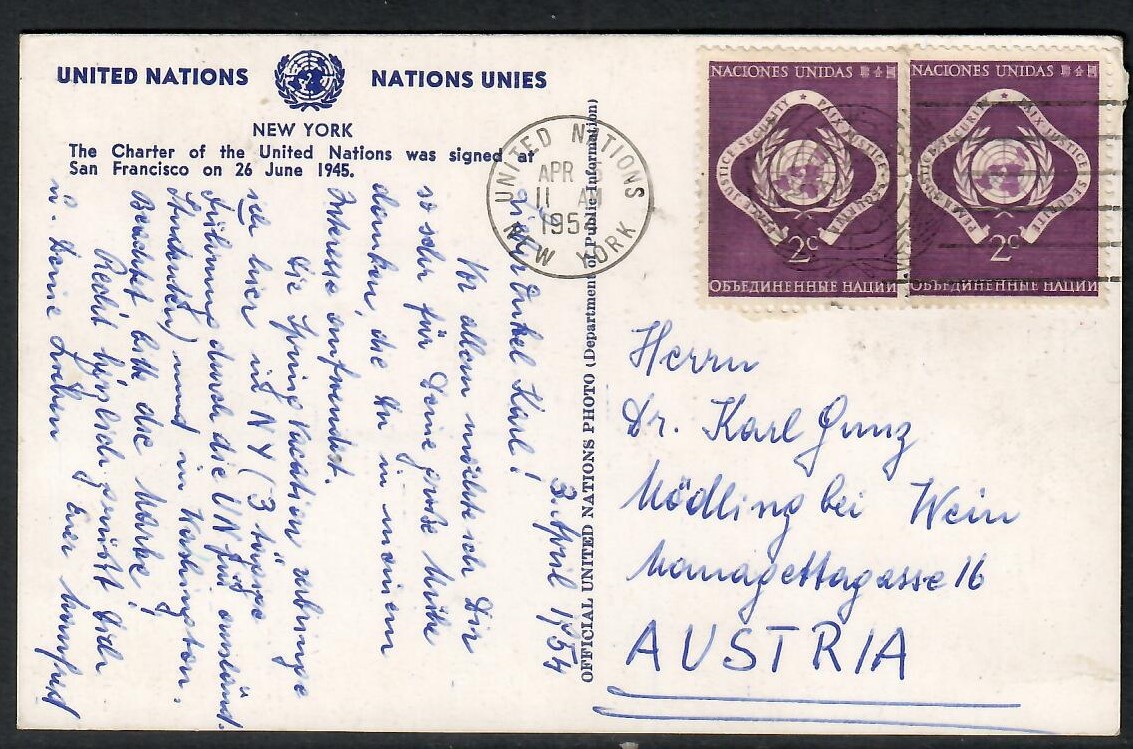 UNITED NATIONS NATIONS UNIES
NEW YORK
The Charter of the United Nations was signed at
San Francisco on 26 June 1945.
UNITED NATIONS
APR
11 AM
195
NEW YORK
NACIONES UNIDAS
PEACE JUSTICE SECURITY ★ PAIX JUSTICE SÉCURITÉ
2c
ОБЪЕДИНЕННЫЕ НАЦИИ
NACIONES UNIDAS
PEACE JUSTICE SECURITY ★ PAIX JUSTICE SÉCURITÉ
2c
ОБЪЕДИНЕННЫЕ НАЦИИ
OFFICIAL UNITED NATIONS PHOTO (Department of Public Information)
3. April 1954
Lieber Onkel Karl!
Vor allem möchte ich Dir
so sehr für Deine große Mühe
danken, die Du in meinem
Interesse
Die Spring Vacation verbringe
ich hier in NY (3 tägige
Führung durch die UN für ausländ.
Studenten) und in Washington.
Beachtet bitte die Marke!
Recht herzlich grüßt Dich
u. Deine Lieben Euer Manfred
Herrn
Dr. Karl Gunz
Mödling bei Wein
Managettagasse 16
AUSTRIA